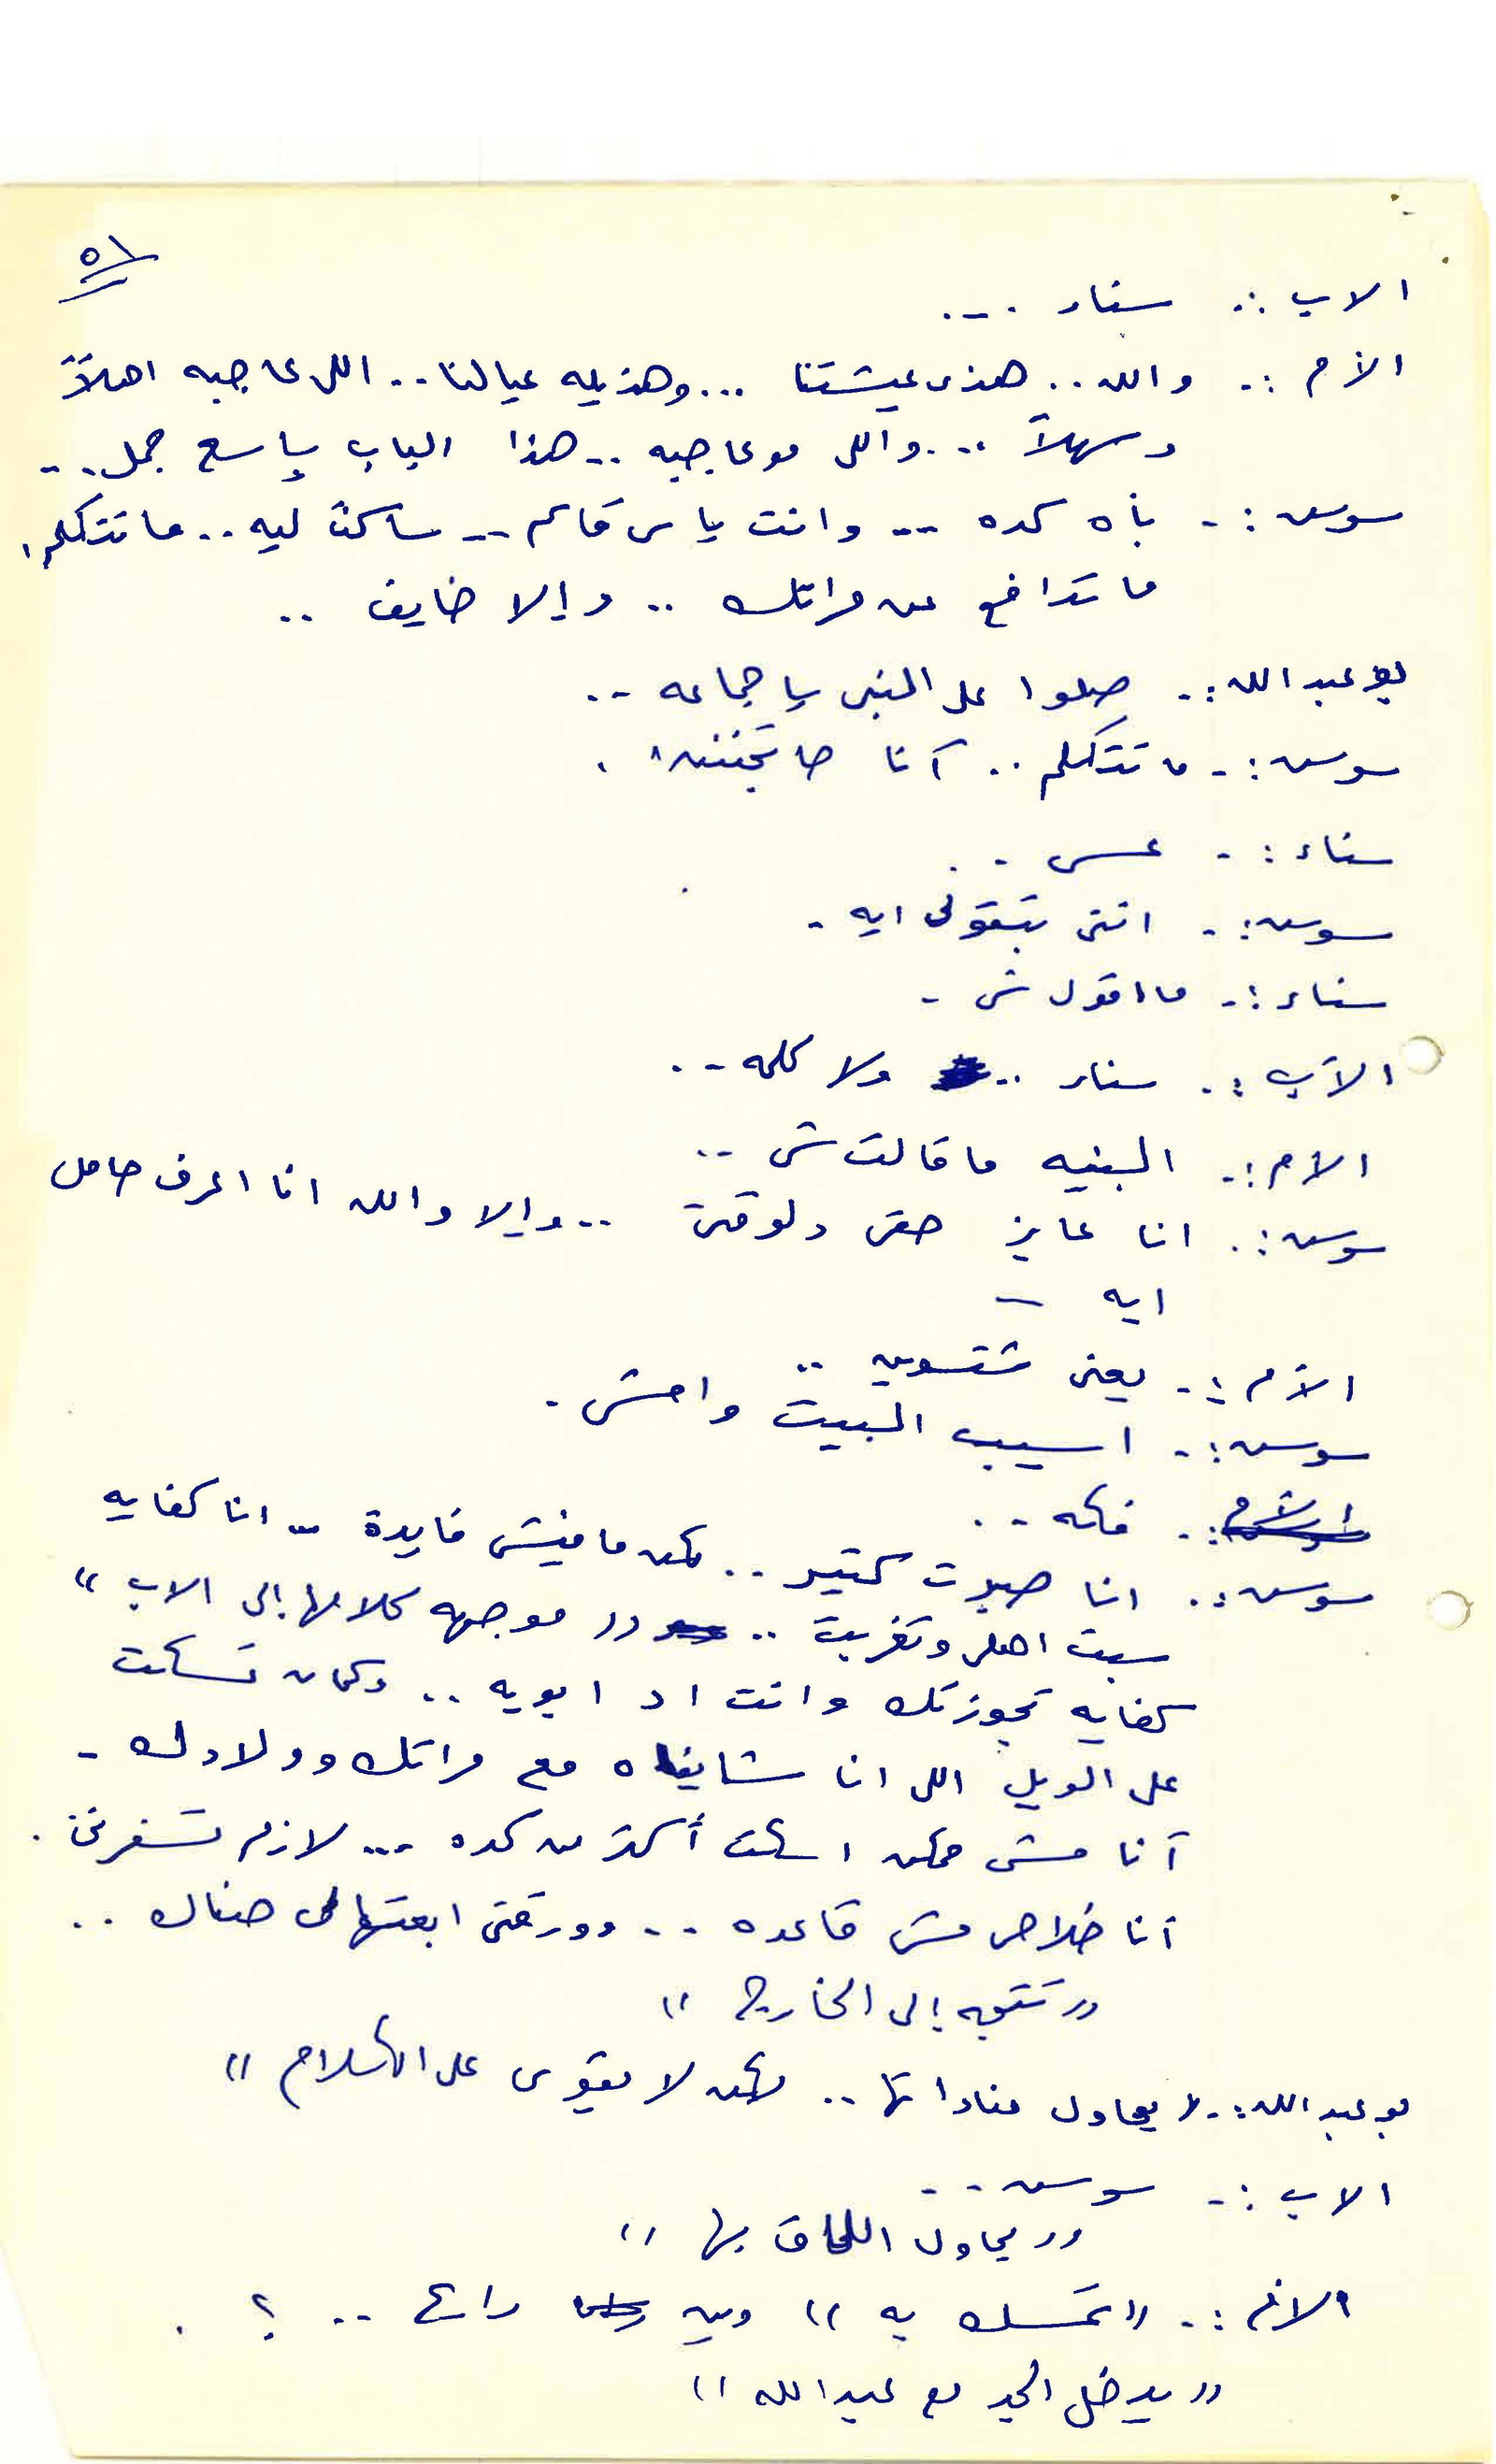 ٥١
الاب :. سناء ...
الأم :. والله .. هذى عيشتنا ... وهذيله عيالنا .. اللى عاجبه اهلاً
وسهلاً ... واللى مو عاجبه .. هذا الباب ياسع جمل ..
سوسن :- بأه كده .. وانت ياسى قاسم .. ساكت ليه .. ماتتكلم
ماتدافع عن مراتك .. وإلا خايف ..
بو عبدالله :. صلوا على النبى ياجماعه ..
سوسن :- ماتتكلم .. أنا حاتجنن .
سناء :- عسى ..
سوسن :- انتى بتقولى ايه -
سناء :- ما اقول شى -
الأب :. سناء .. ولا كلمه ..
الام :- البنيه ما قالت شى ..
سوسن :. انا عايز حقى دلوقتى .. وإلا والله انا اعرف حامل
ايه -
الأم :- يعنى شتسوين ..
سوسن :- اسيب البيت وامشى .
الأم :. فكه ..
سوسن :. انا صبرت كتير .. لكن مافيش فايدة .. انا كفايه
سبت اهلى وتغربت .. (( موجهه كلامها إلى الاب ))
كفايه تجوزتك وانت اد ابويه .. وكمان تسكت
على الويل اللى انا شايفاه مع مراتك وولادك -
أنا مش ممكن اسكت أكتر من كده ... لازم تسفرنى .
أنا خلاص مش قاعده .. وورقتى ابعتها لى هناك ..
(( تتجه إلى الخارج ))
بو عبدالله :- (( يحاول مناداتها .. لكن لا يقوى على الكلام ))
الاب :- سوسن ..
(( يحاول اللحاق بها ))
الأم :- (( تمسك به )) وين رايح .. ؟
(( يدخل الجد مع عبدالله ))